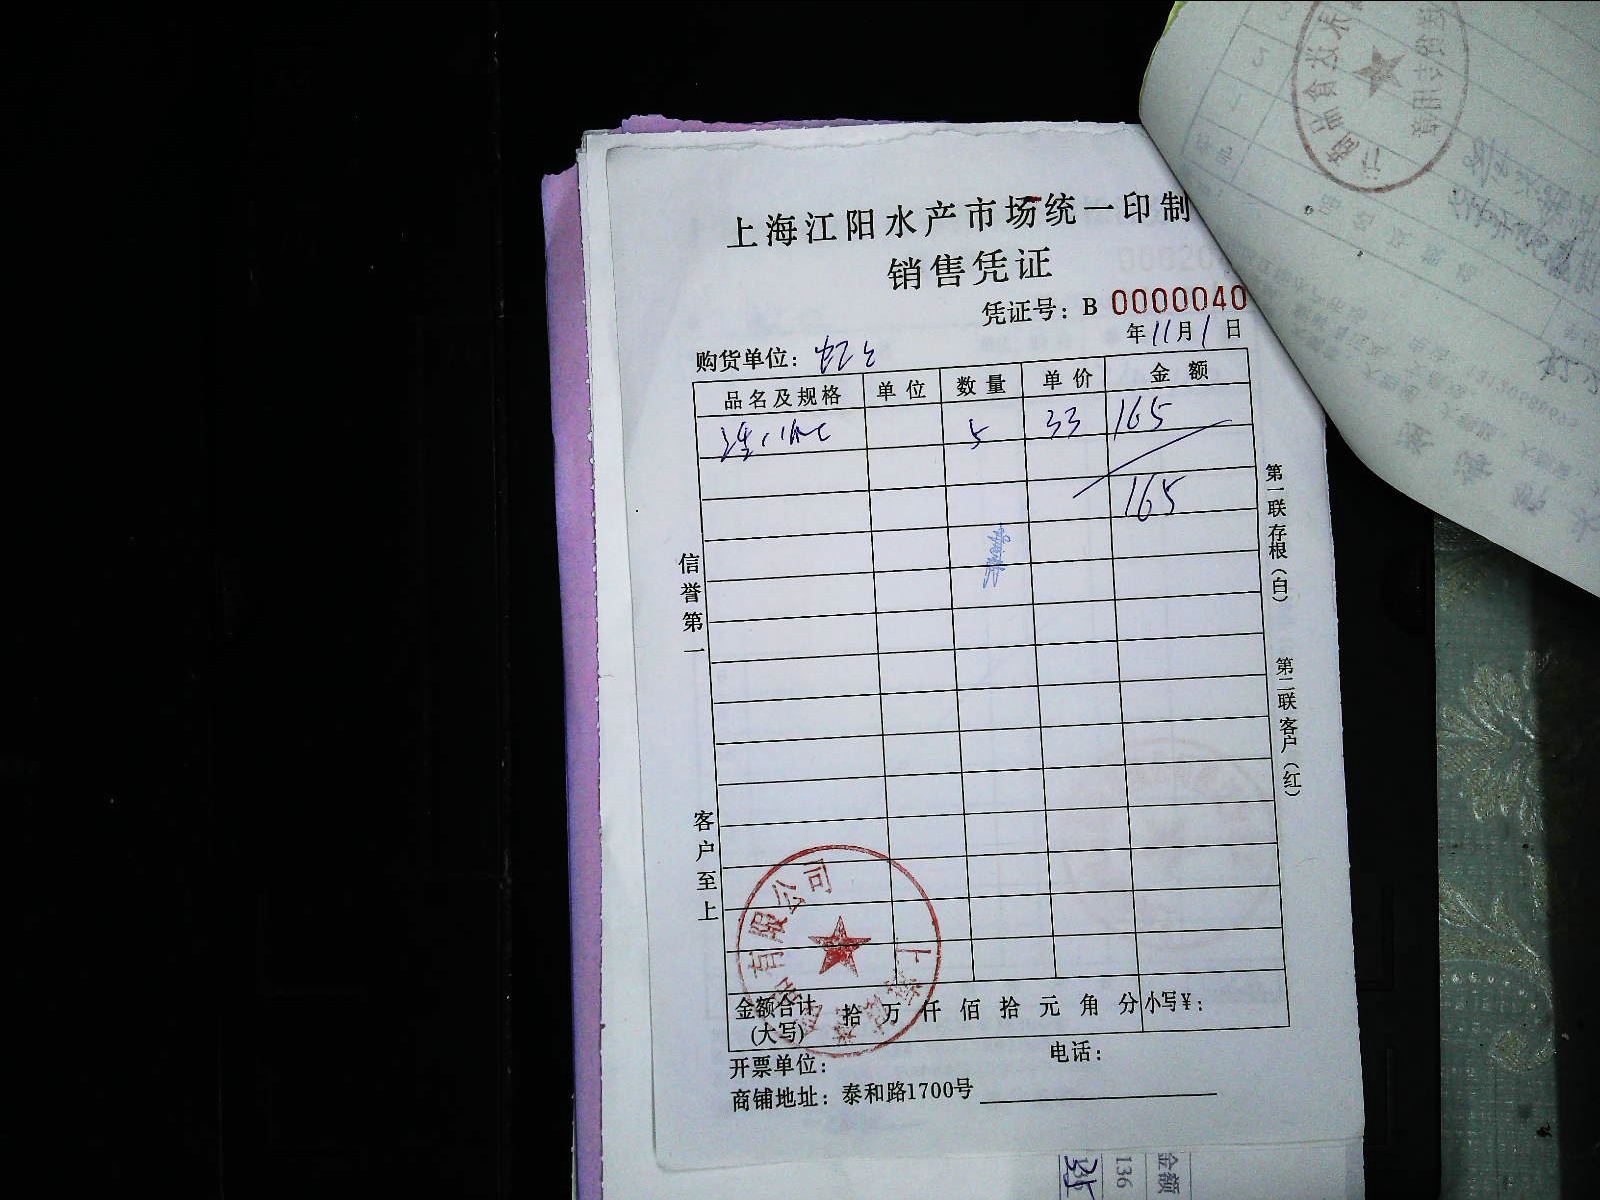 上海江阳水产市场统一印制
销售凭证
凭证号：B 0000040
年11月1日
购货单位：
品名及规格 单位 数量 单价 金额
5 33 165
165
信誉第一
客户至上
第一联存根（白）
第二联客户（红）
有限公司
上海
金额合计(大写) 拾 万 仟 佰 拾 元 角 分 小写¥：
开票单位： 电话：
商铺地址：泰和路1700号
金额
136
35